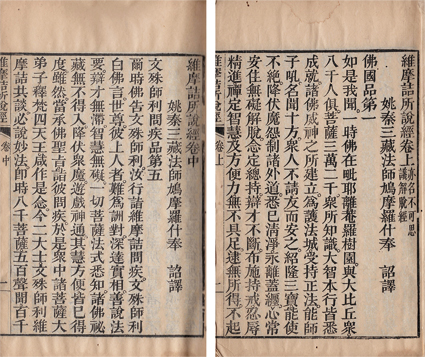 維摩詰所說經卷上 亦名不可思議解脫經
姚秦三藏法師鳩摩羅什奉 詔譯
佛國品第一
如是我聞一時佛在毗耶離菴羅樹園與大比丘眾
八千人俱菩薩三萬二千眾所知識大智本行皆悉
成就諸佛威神之所建立為護法城受持正法能師
子吼名聞十方眾人不請友而安之紹隆三寶能使
不絕降伏魔怨制諸外道悉已清淨永離蓋纏心常
安住無礙解脫念定總持辯才不斷布施持戒忍辱
精進禪定智慧及方便力無不具足逮無所得不起
維摩詰所說經 卷上 一
維摩詰所說經卷中
姚秦三藏法師鳩摩羅什奉 詔譯
文殊師利問疾品第五
爾時佛告文殊師利汝行詣維摩詰問疾文殊師利
白佛言世尊彼上人者難為詶對深達實相善說法
要辯才無滯智慧無礙一切菩薩法式悉知諸佛祕
藏無不得入降伏眾魔遊戲神通其慧方便皆已得
度雖然當承佛聖旨詣彼問疾於是眾中諸菩薩大
弟子釋梵四天王咸作是念今二大士文殊師利維
摩詰共談必說妙法即時八千菩薩五百聲聞百千
維摩詰所說經 卷中